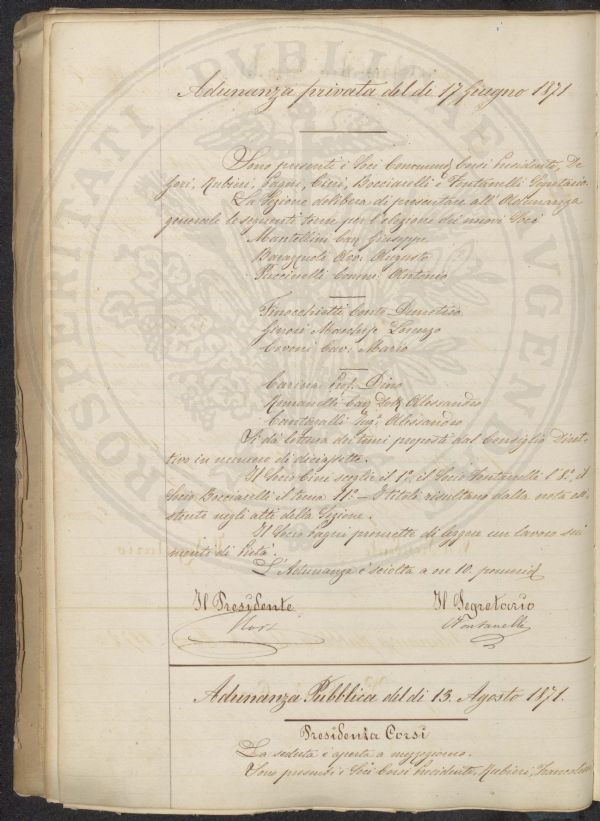 Adunanza privata del dì 17 Giugno 1871
Sono presenti i Soci Corsi Presidente, De
Gori, Rubieri, Pagni, Cini, Bocciarelli e Fontanelli Segretario
La Sezione delibera di presentare all'Adunanza
generale le seguenti terne per l'elezione dei nuovi Soci
Mantellini Cav. Giuseppe
Augusto
Puccinelli Comm. Antonio
Finocchietti Conte Demetrio
Ginori Marchese Lorenzo
Covoni Cav. Mario
Carina Prof. Dino
Romanelli Cav. Dott. Alessandro
Cantarelli Ing. Alessandro
Si dà lettura dei temi proposti dal Consiglio Diret-
tivo in numero di diciassette.
Il Socio Cini sceglie il 1º, il Socio Fontanelli l'8º, il
Socio Bocciarelli il tema 11º - I titoli risultano dalla nota esi-
stente negli atti della Sezione.
Il Socio Pagni promette di leggere un lavoro sui
monti di Pietà.
L'Adunanza è sciolta a ore 10. pomerid.
Il Presidente Il Segretario
Corsi CFontanelli
Adunanza Pubblica del dì 13. Agosto 1871.
Presidenza Corsi
La seduta è aperta a mezzogiorno.
Sono presenti i Soci Corsi Presidente, Rubieri,
PROSPERITATI PVBLICAE AVGENDAE